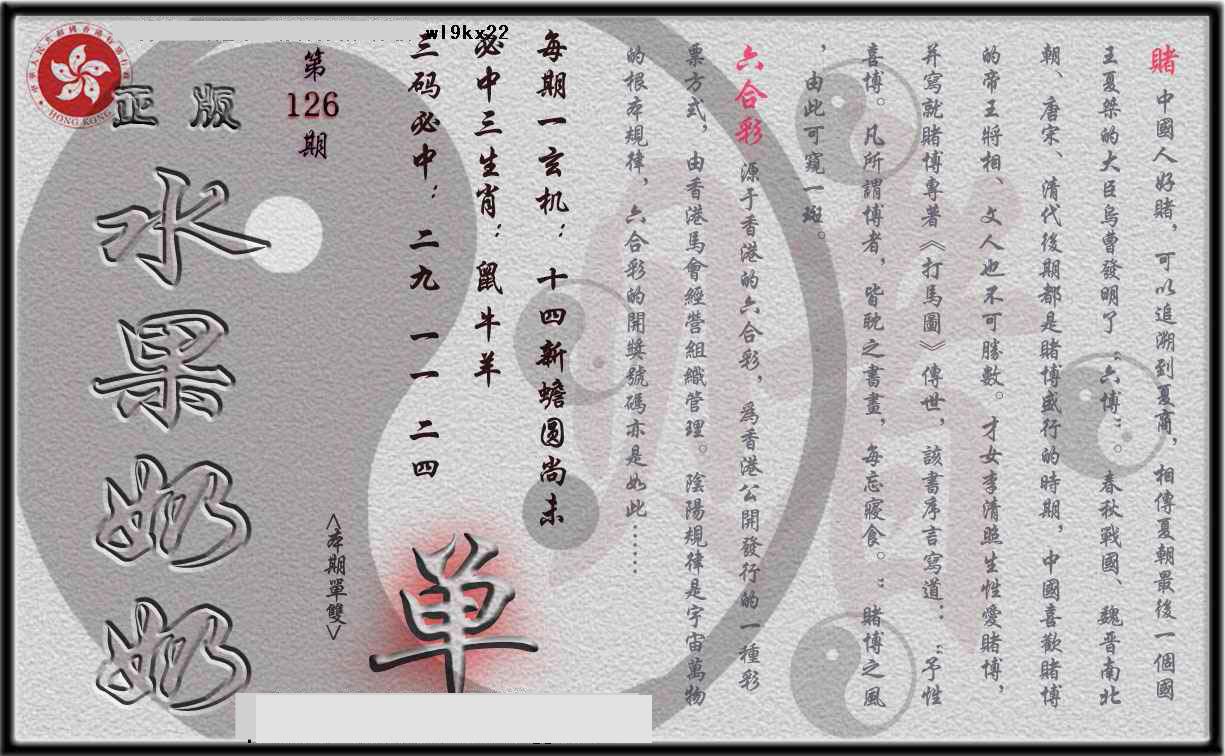 賭 中國人好賭，可以追溯到夏商，相傳夏朝最後一個國
王夏桀的大臣烏曹發明了“六博”。春秋戰國、魏晋南北
朝、唐宋、清代後期都是賭博盛行的時期，中國喜歡賭博
的帝王將相、文人也不可勝數。才女李清照生性愛賭博，
并寫就賭博專著《打馬圖》傳世，該書序言寫道：“予性
喜博。凡所謂博者，皆眈之書畫，每忘寢食。”賭博之風
，由此可窺一斑。
六合彩 源于香港的六合彩，爲香港公開發行的一種彩
票方式，由香港馬會經營組織管理。陰陽規律是宇宙萬物
的根本規律，六合彩的開獎號碼亦是如此……
每期一玄机：十四新蟾圆尚未
必中三生肖：鼠牛羊
三码必中：二九 一一 二四
wl9kx22
单
<本期單雙>
第126期
正版
水果奶奶
HONG KONG